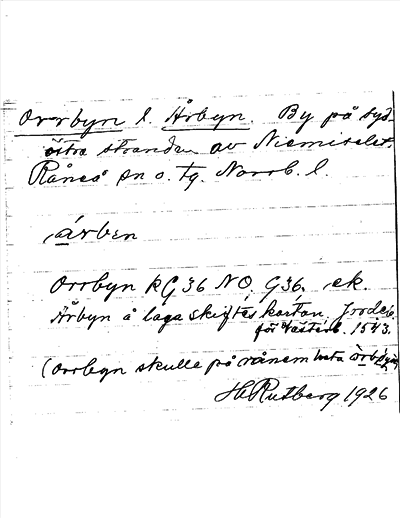 Orrbyn l. Årbyn. By på syd-
östra stranden av Niemiselet.
Råneå sn o. tg. Norrb. l.
årben
Orrbyn kG36 NO. G36. ek.
Årbyn å laga skiftes kartan. Jordeb.
för Västerb. 1543.
(Orrbyn skulle på rånem heta orbyn)
H Rutberg 1926